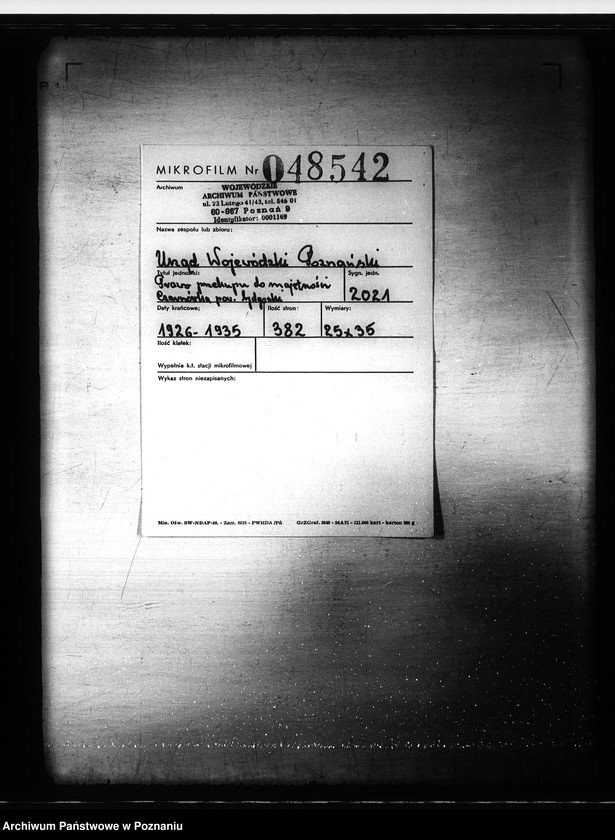 MIKROFILM Nr 048542
Archiwum
WOJEWÓDZKIE
ARCHIWUM PAŃSTWOWE
ul. 23 Lutego 41/43, tel. 546 01
60-967 Poznań 9
Identyfikator: 0001169
Nazwa zespołu lub zbioru:
Urząd Wojewódzki Poznański
Tytuł jednostki:
Sygn. jedn.
Prawo przekupu do majętności
pow.
2021
Daty krańcowe:
Ilość stron:
Wymiary:
1926-1935
382
25x35
Ilość klatek:
Wypełnia k.t. stacji mikrofilmowej
Wykaz stron niezapisanych:
Min. Ośw. SW-NDAP-26. - Zam. - PWRDA/Pń
GrZGraf. - karton
Archiwum Państwowe w Poznaniu